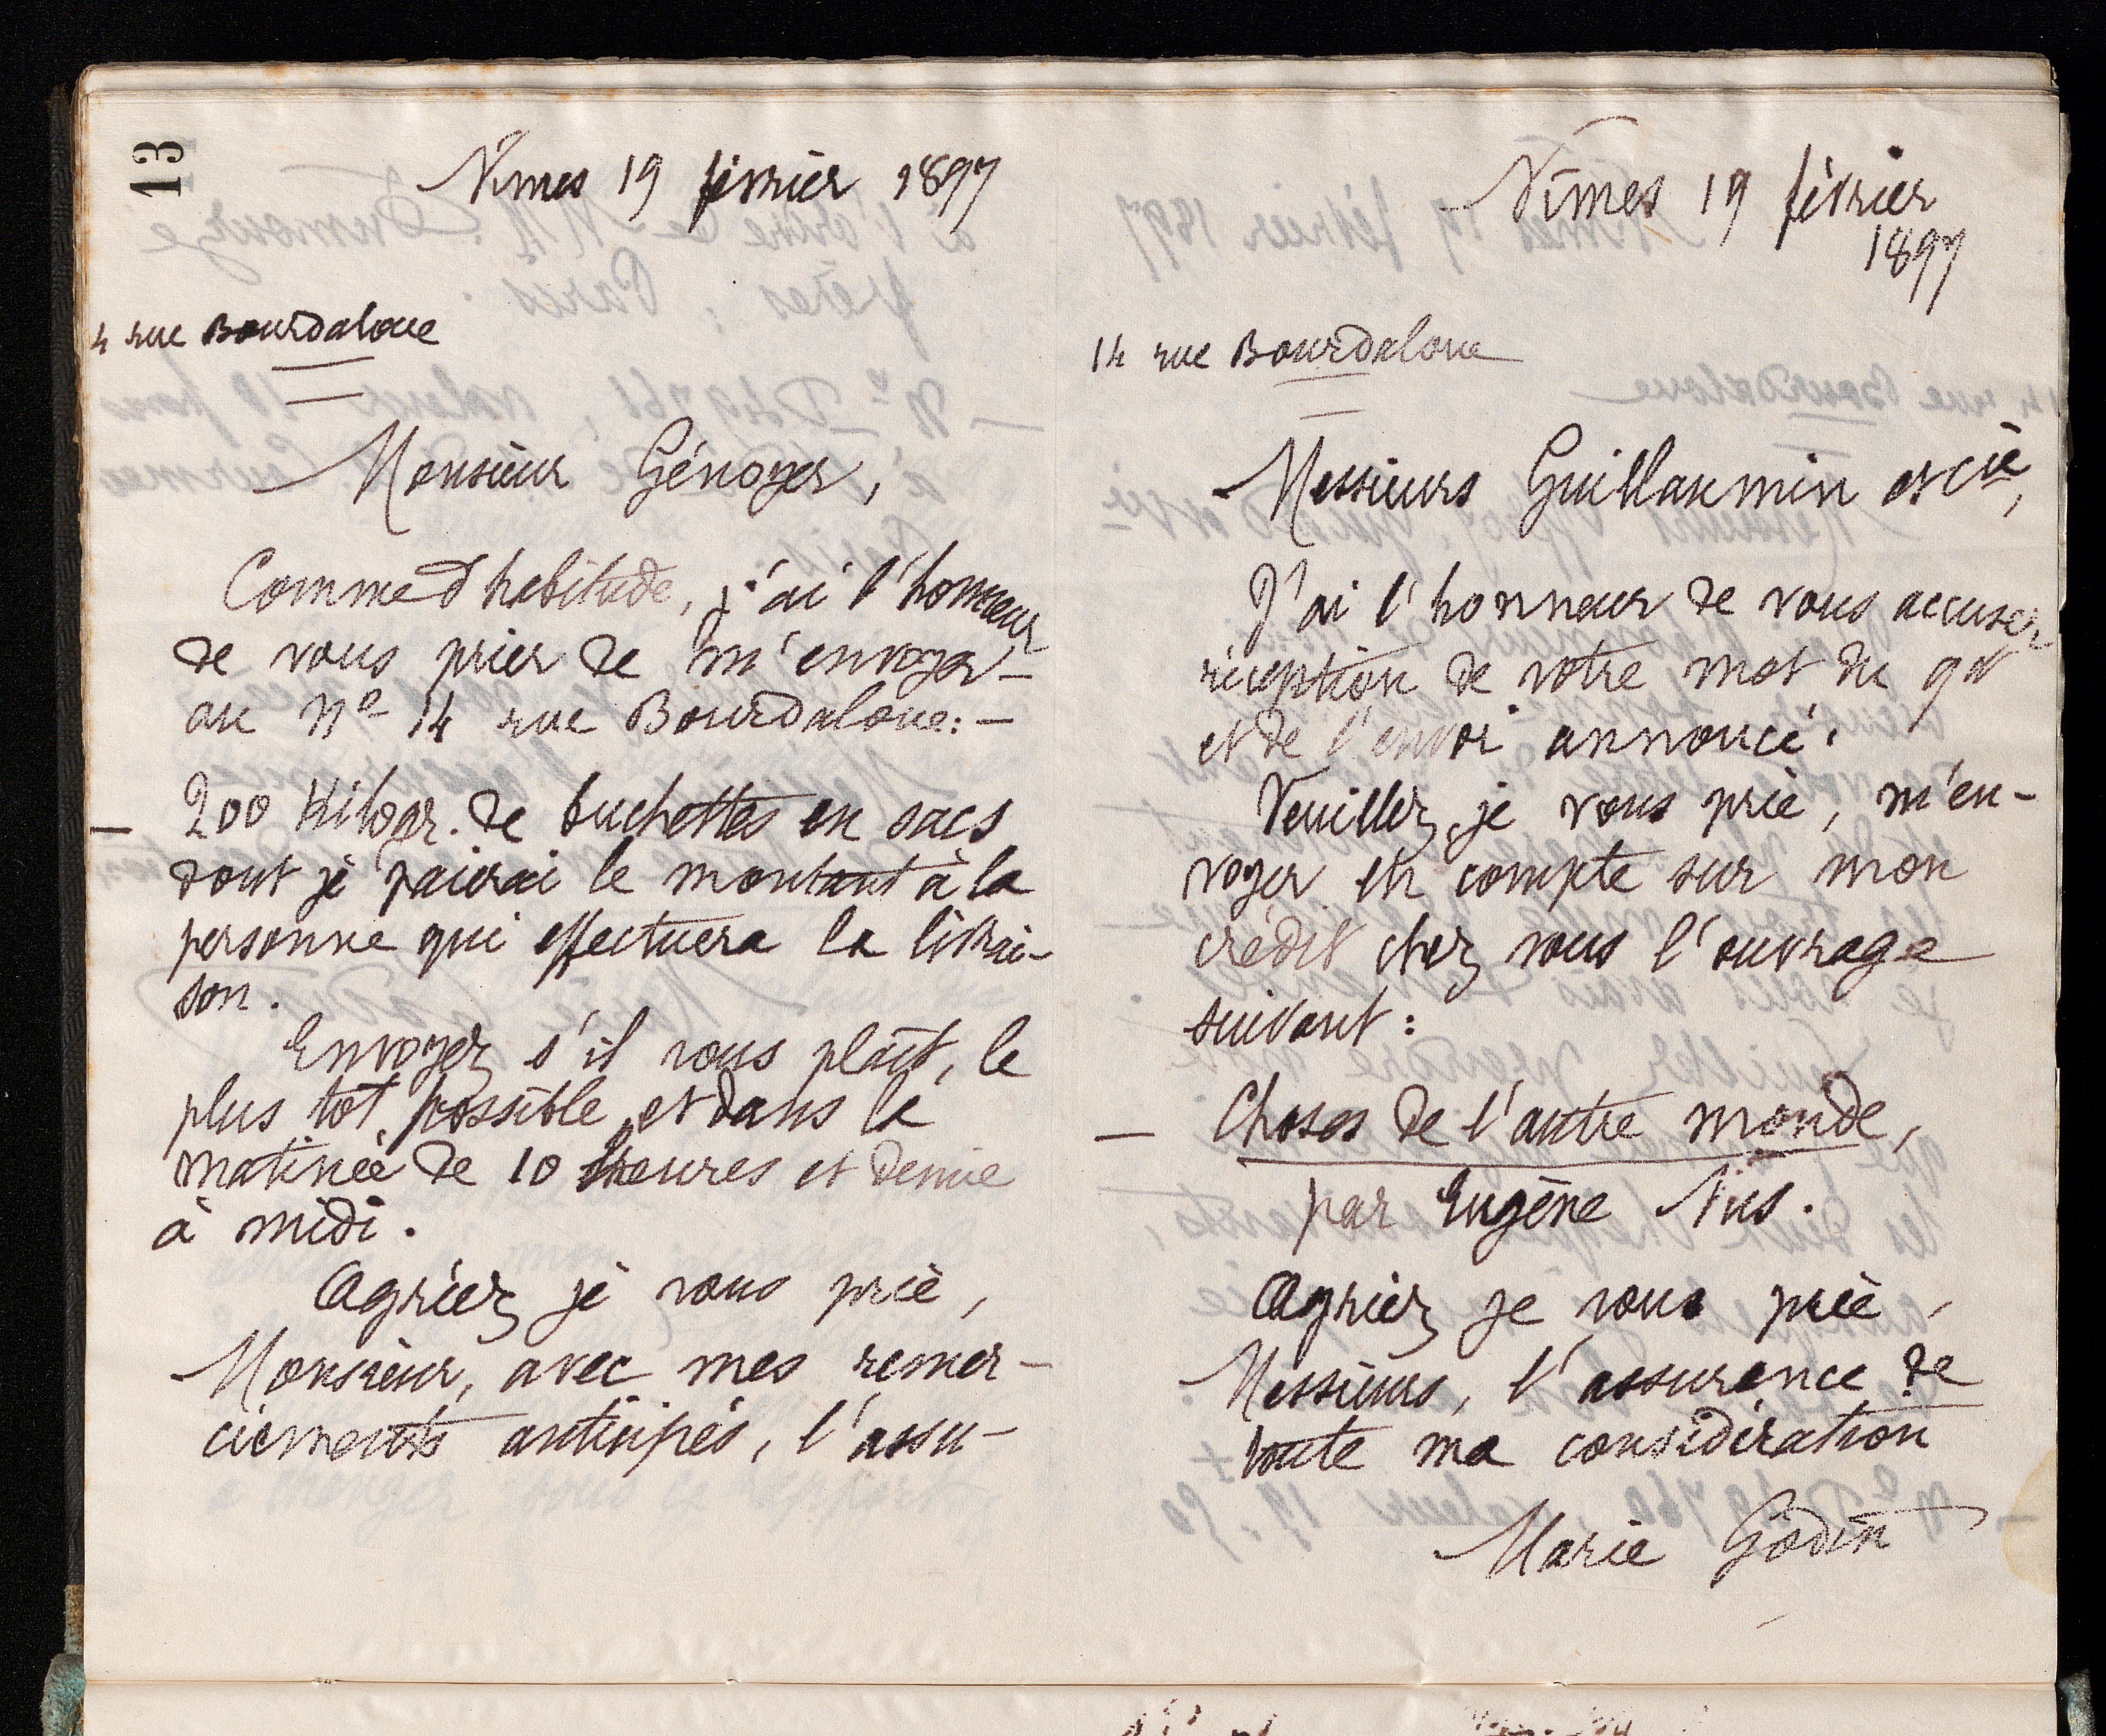 13
Nîmes 19 février 1897
4 rue Bourdaloue
Monsieur Génoyer,
Comme d'habitude, j'ai l'honneur
de vous prier de m'envoyer –
au Nº 14 rue Bourdaloue: –
– 200 Kilogr. de buchettes en sacs
dont je paierai le montant à la
personne qui effectuera la livrai-
son.
Envoyez s'il vous plaît, le
plus tôt possible, et dans la
matinée de 10 heures et demie
à midi.
Agréez je vous prie,
Monsieur, avec mes remer-
ciements anticipés, l'assu-
Nîmes 19 février
1897
14 rue Bourdaloue
Messieurs Guillaumin et Cie,
J'ai l'honneur de vous accuser
réception de votre mot du
et de l'envoi annoncé.
Veuillez, je vous prie, m'en-
voyer en compte sur mon
crédit chez vous l'ouvrage
suivant:
– Choses de l'autre monde,
par Eugène Nus.
Agréez je vous prie,
Messieurs, l'assurance de
toute ma considération
Marie Godin